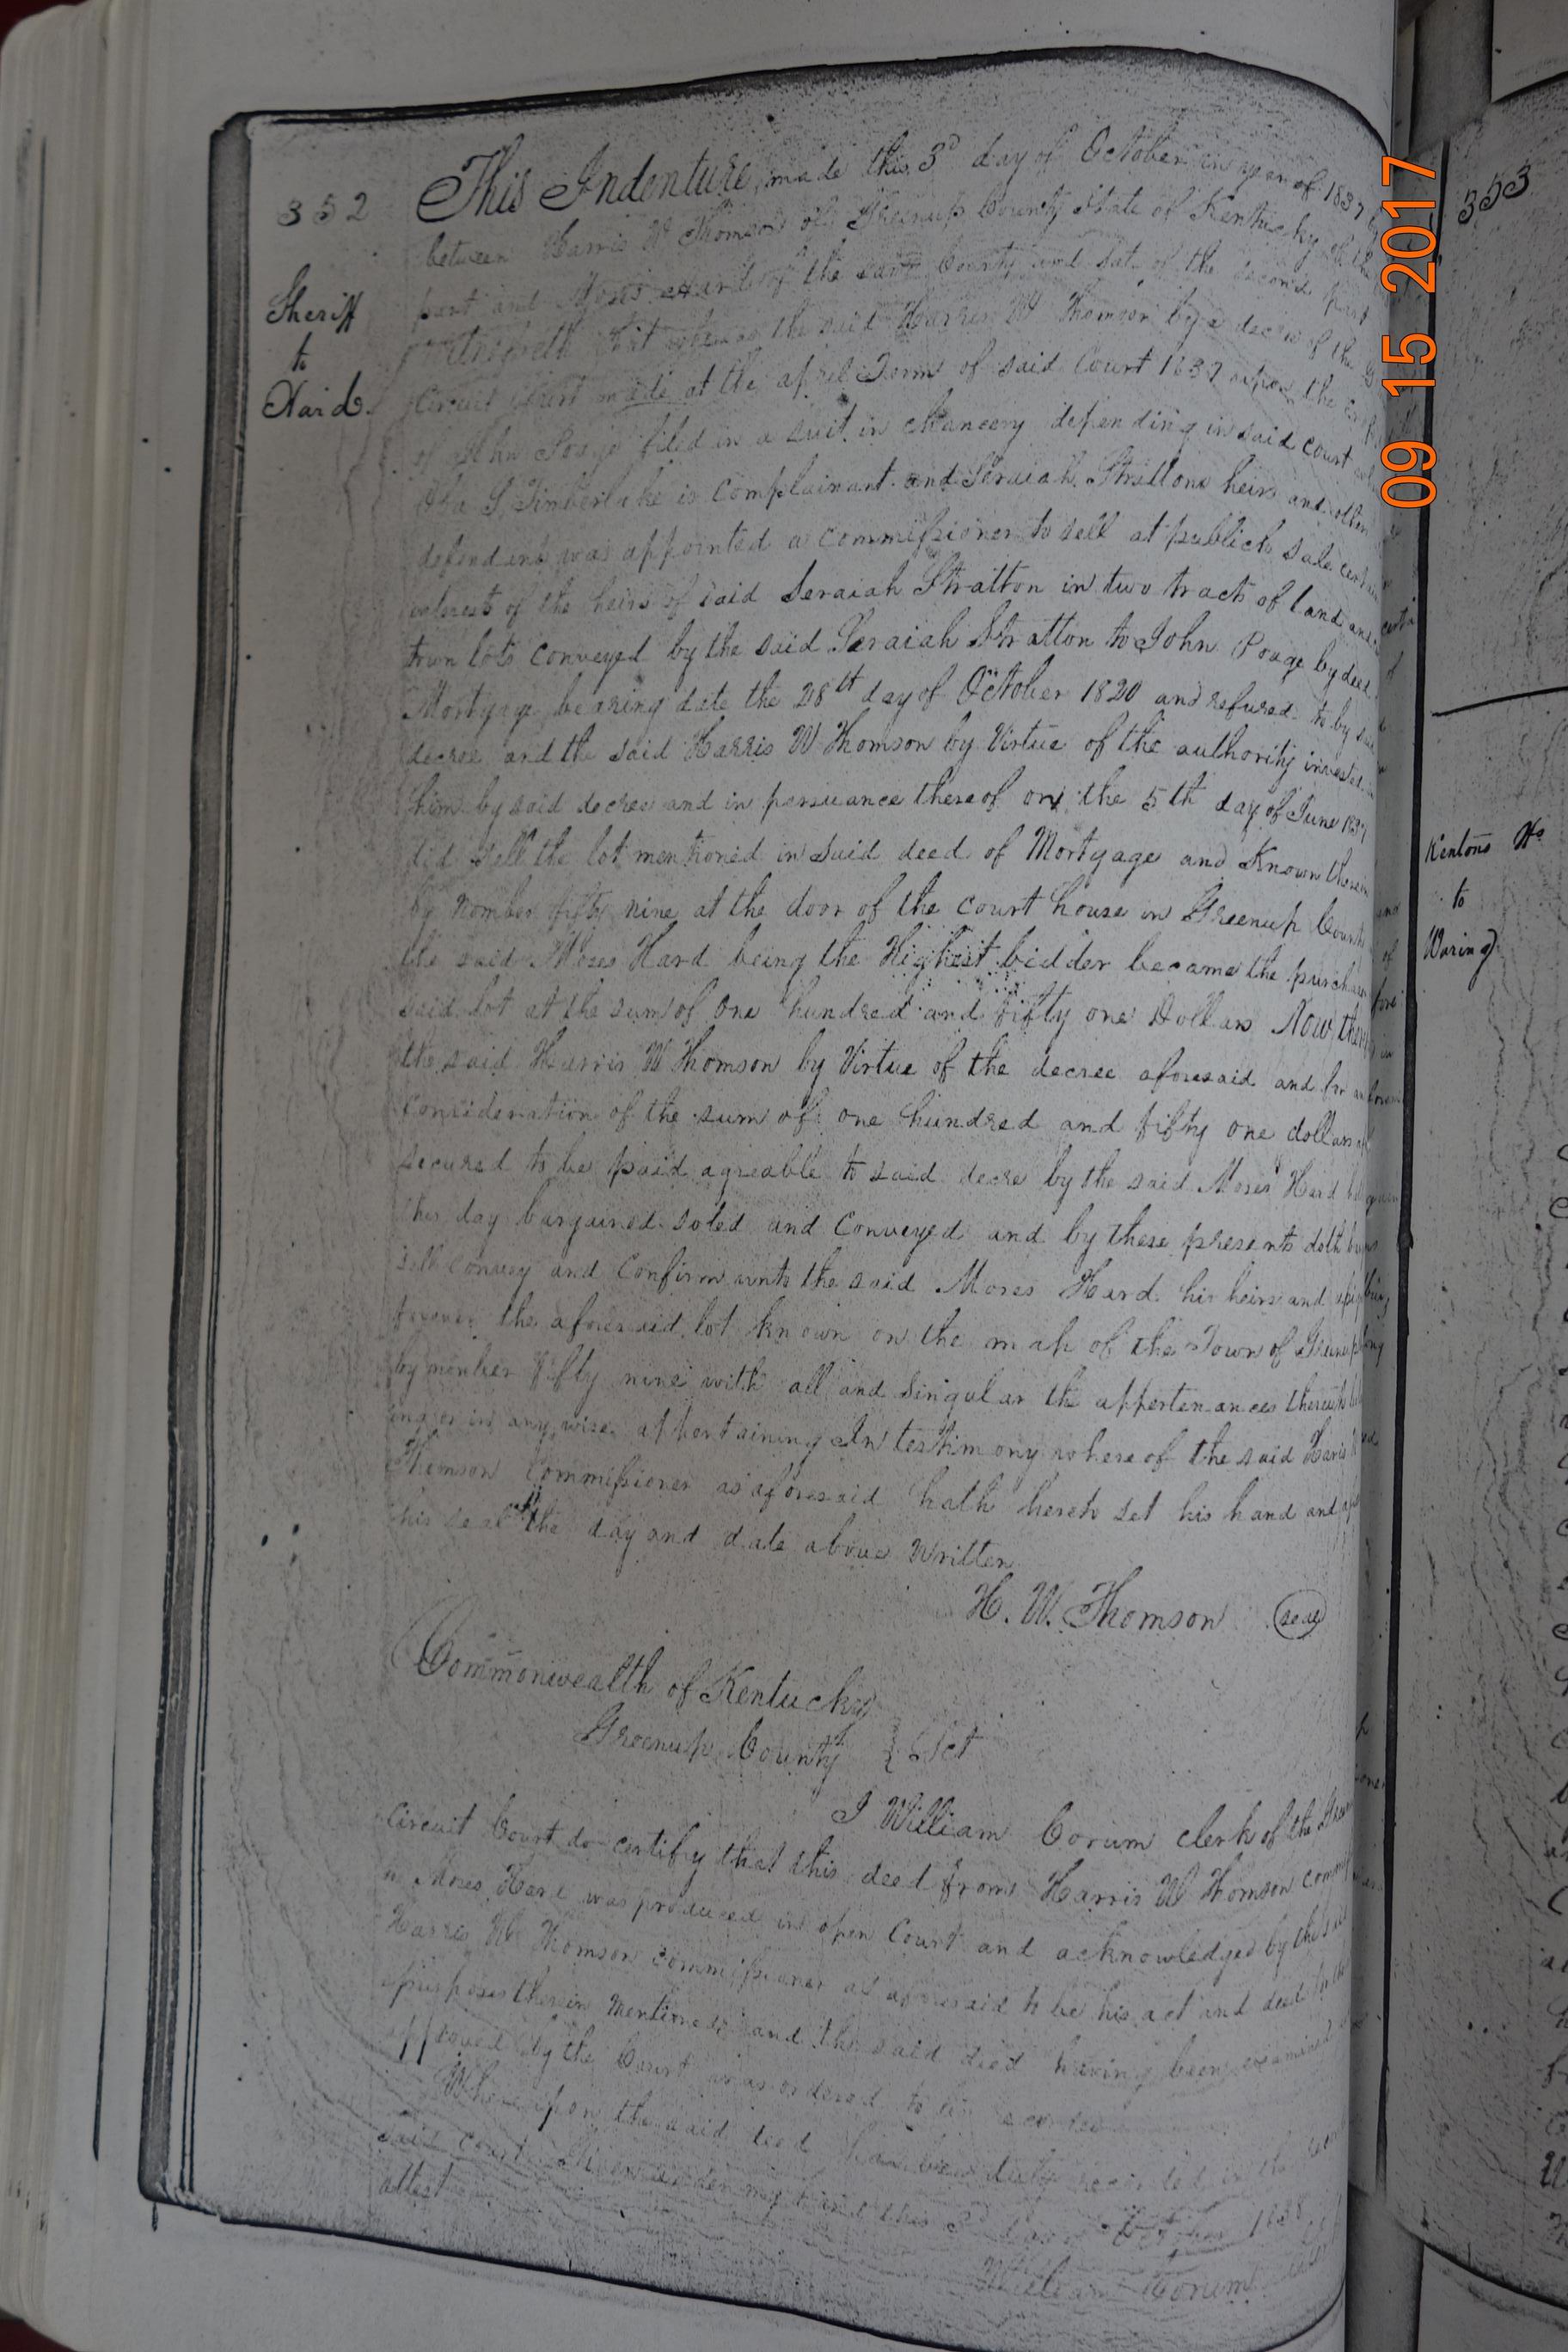 352
Sheriff
to
Hard.
This Indenture, made this 3d day of October in year of 1837
between Harris W Thomson of Greenup County State of Kentucky of the
part and Moses Hard of the same County and Sate of the second part
Witnesseth that whereas the said Harris W Thomson by a decree of the
Circuit Court made at the aprel Term of said Court 1837 upon the
of John Poage filed in a suit in chancery depending in said court
S Timberlake is Complainant and Seraiah Strattons heirs and others
defendents was appointed a Commissioner to sell at publick sale certain
interest of the heirs of said Seraiah Stratton in two tracts of land and
town lots conveyed by the said Seraiah Stratton to John Poage by deed
Mortgage bearing date the 28th day of October 1820 and refured to by said
decree and the said Harris W Thomson by Virtue of the authority invested in
him by said decree and in persuance thereof on the 5th day of June 1837
did sell the lot mentioned in said deed of Mortgage and Known therein
by nomber fifty nine at the door of the court house in Greenup County
the said Moses Hard being the Highest bidder became the purchaser
said lot at the sum of one hundred and fifty one Dollars Now there
the said Harris W Thomson by Virtue of the decree aforesaid and for
Consideration of the sum of one hundred and fifty one dollars
secured to be paid agreable to said decre by the said Moses Hard
this day bargained soled and Conveyed and by these presents doth
sell Convey and Confirm unto the said Moses Hard his heirs and
forever the aforesaid lot known on the map of the Town of Greenup
by nomber fifty nine with all and Singular the appertenances thereunto
ing or in any wise appertaining In testimony whereof the said Harris W
Thomson Commissioner as aforesaid hath hereto set his hand and
his seal the day and date above Written
H. W. Thomson (seal)
Commonwealth of Kentucky
Greenup County } Sct
I William Corum clerk of the
Circuit Court do certify that this deed from Harris W Thomson
to Moses Hard was produced in open Court and acknowledged by the said
Harris W Thomson commissioner as aforesaid to be his act and deed for the
purposes therein mentioned and the said deed having been examined
approved by the Court was ordered to be recorded
Whereupon the said deed has been duly recorded in the
said court Given under my hand this 3d day of October 1838
attest
William Corum
353
Kentons Hs
to
Waring
09 15 2017